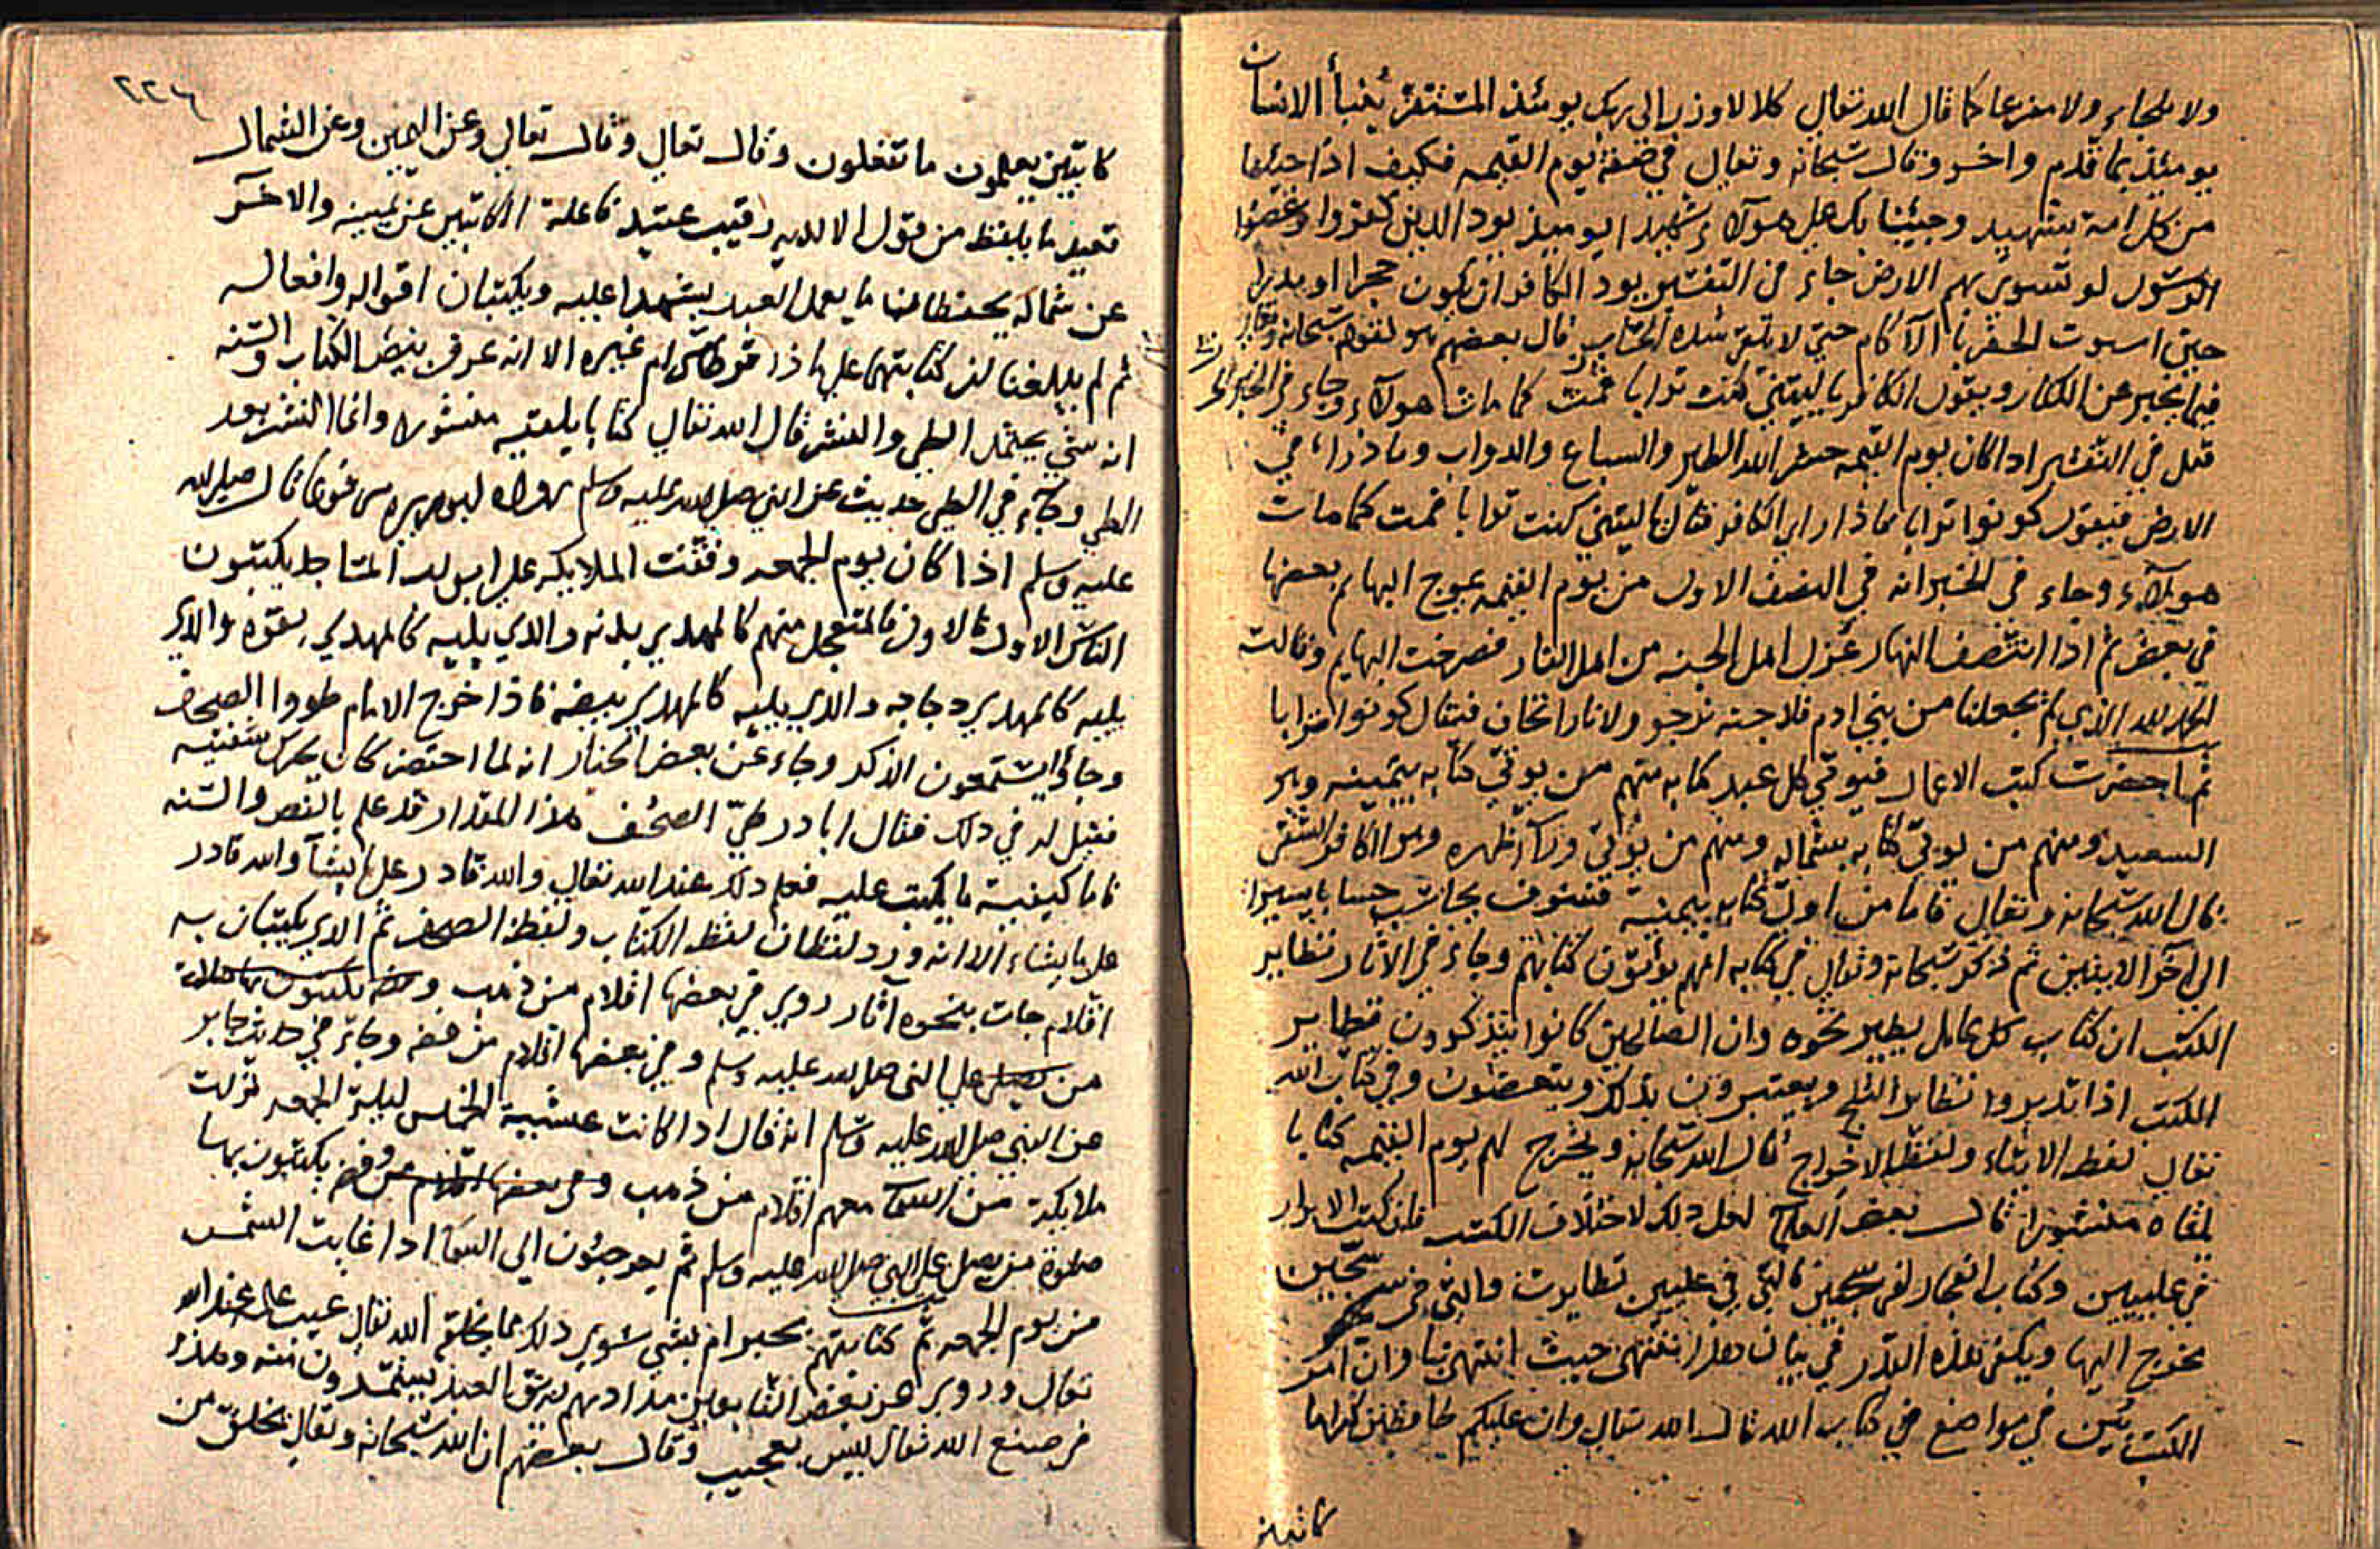 ولا ملجاء ولا مفزعا كما قال الله تعالى كلا لا وزر الى ربك يومئذ المستقر ينبأ الانسان
يومئذ بما قدم واخر وقال سبحانه وتعالى في صفة يوم القيمه فكيف اذا جئنا
من كل امة بشهيد وجئنا بك على هولآء شهيدا يوميذ يود الذين كفروا وعصوا
الرسول لو تسوى بهم الارض جاء في التفسير يود الكافر ان يكون حجرا او مدرا
حتى لا تقع شدة الحساب قال بعضهم هو لقوله سبحانه وتعالى
فيما يخبر عن الكفار ويقول الكافر يا ليتني كنت ترابا فمت كما مات هولآء وجاء في الخبر
قيل في التفسير اذا كان يوم القيمه حشر الله الطير والسباع والدواب وما ذرا في
الارض فيقول كونوا ترابا فاذا راى الكافر قال يا ليتني كنت ترابا فمت كما مات
هولآء وجاء في الخبر انه في النصف الاول من يوم القيمه يموج البهايم بعضها
في بعض ثم اذا انتصف النهار عزل اهل الجنه من اهل النار فصرخت البهايم وقالت
الحمد لله الذي لم يجعلنا من بني ادم فلا جنه نرجو ولا نارا نخاف فيقال كونوا ترابا
ثم احضرت كتب الاعمال فيوتى كل عبد كتابه منهم من يوتى كتابه بيمينه وهو
السعيد ومنهم من يوتى كتابه بشماله ومنهم من يوتى ورآ ظهره وهو الكافر الشقي
قال الله سبحانه وتعالى فاما من اوتى كتابه بيمينه فسوف يحاسب حسابا يسيرا
الى آخر الايتين ثم ذكر سبحانه وتعالى في كتابه انهم يؤتون كتابهم وجاء في الآثار تطاير
الكتب ان كتاب كل عامل يطير نحوه وان الصالحين كانوا يتذكرون تطاير
الكتب اذا تدبروا تطاير الثلج ويعتبرون بذلك ويتعضون وفي كتاب الله
تعالى لفظ الايتاء ولفظ الاخراج قال الله سبحانه ونخرج لهم يوم القيمه كتابا
يلقاه منشورا قال بعض العلماء لعل ذلك لاختلاف الكتب فان كتب الابرار
في عليين وكتاب الفجار لفي سجين فالتي في عليين تطايرت والتي في سجين
تخرج اليها ويكفي هذه القدر في بيان هذا ننتهي حيث انتهى بنا وان امر
الكتب بين في مواضع في كتاب الله قال الله تعالى وان عليكم لحافظين كراما
كاتبين
٢٢٦
كاتبين يعلمون ما تفعلون وقال تعالى وقال تعالى وعن اليمين وعن الشمال
قعيد ما يلفظ من قول الا لديه رقيب عتيد فاعلمه الكاتبين عن يمينه والاخر
عن شماله يحفظان ما يعمل العبد يشهدا عليه ويكتبان اقواله وافعاله
ثم لم يبلغنا ان كتابتهما على ماذا قرطاس ام غيره الا انه عرف بنص الكتاب والسنه
انه شي يحتمل الطي والنشر قال الله تعالى كتابا يلقيه منشورا وانما النشر بعد
الطي وجاء في الطي حديث عن النبي صلى الله عليه وسلم رواه ابو هريره مرفوعا قال صلى الله
عليه وسلم اذا كان يوم الجمعه وقفت الملايكه على ابواب المساجد يكتبون
الناس الاول فالاول فالمتعجل منهم كالمهدي بدنه والذي يليه كالمهدي بقره والذي
يليه كالمهدي دجاجه والذي يليه كالمهدي بيضه فاذا خرج الامام طووا الصحف
وجاؤا يستمعون الذكر وجاء عن بعض انه لما احتضر كان يحرك شفتيه
فقيل له في ذلك فقال ابادر طي الصحف هذا المقدار قد علم بالنص والسنه
فاما كيفية ما يكتب عليه فعلم ذلك عند الله تعالى والله قادر على ما يشآ والله قادر
على ما يشاء الا انه ورد لفظان لفظ الكتاب ولفظ الصحف ثم الذي يكتبان به
اقلام جات بنحوه آثار روي في بعضها اقلام من ذهب يكتبون بها صلاة
من يصلي على النبي صلى الله عليه وسلم وفي بعضها اقلام من فضه وجاء في حديث جابر
عن النبي صلى الله عليه وسلم انه قال اذا كانت عشية الخميس ليلة الجمعه نزلت
ملايكة من السمآ معهم اقلام من ذهب وفي بعضها اقلام من فضه يكتبون بها
صلوة من يصلي على النبي صلى الله عليه وسلم ثم يعرجون الى السمآ اذا غابت الشمس
من يوم الجمعه ثم كتابتهم بحبر ام بشي سوى ذلك مما يخلقه الله تعالى غيب علمه عند الله
تعالى وروي عن بعض التابعين مدادهم ريق العبد يستمدون منه وهذا
في صنع الله تعالى ليس بعجيب وقال بعضهم ان الله سبحانه وتعالى يخلق من